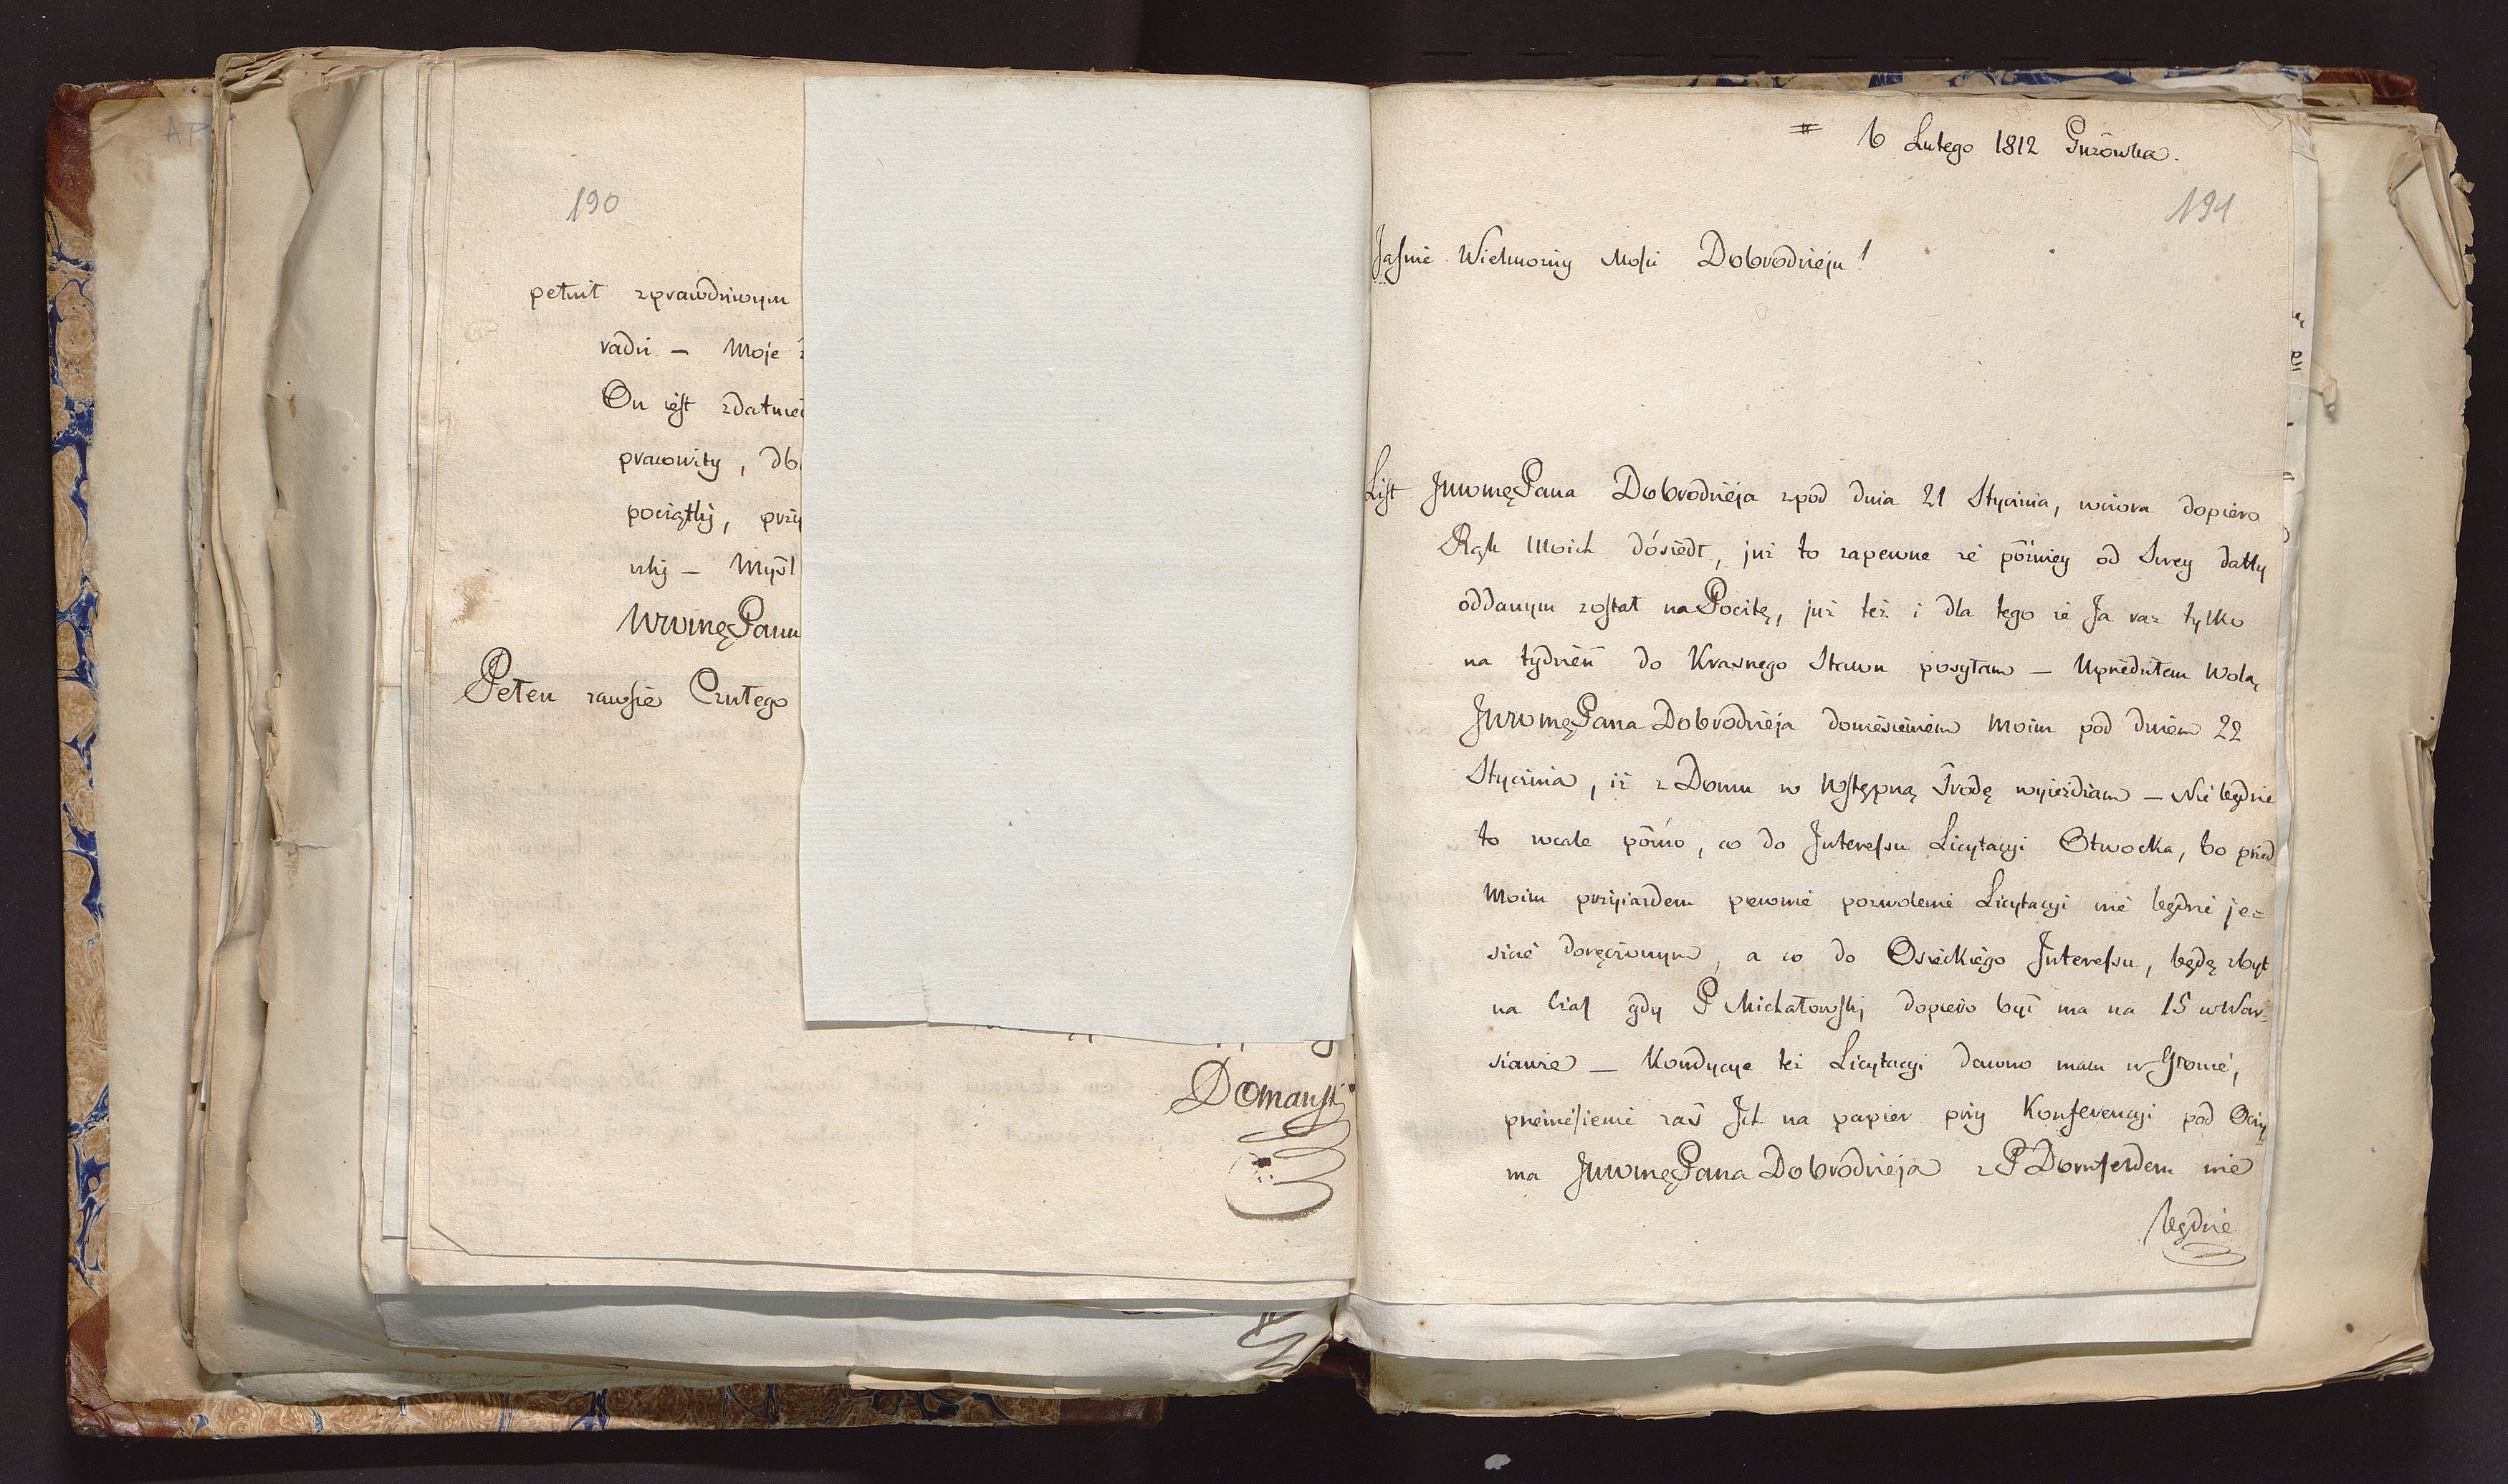 190
pełnił zprawdziwym
radzi — Moje
On iest zdatnie
pracowity, db
początkj, przy
skj — Myśl
WWmęPanu
Pełen zawsze Czułego
Domański
# 6 Lutego 1812
191
Jaśnie Wielmożny Mości Dobrodzieju!
List JWWmęPana Dobrodzieja zpod dnia 21 Stycznia, wczora dopiero
Rąk Moich doszedł, już to zapewne że późniey od Swey datty
oddanym został na Pocztę, już też i dla tego że Ja raz tylko
na tydzień do Krasnego Stawu posyłam — Uprzedziłem Wolą
JWWmęPana Dobrodzieja doniesieniem Moim pod dniem 22
Stycznia, iż z Domu w Wstępną Środę wyieżdżam — Nie będzie
to wcale późno, co do Interessu Licytacyi Otwocka, bo przed
Moim przyiazdem pewnie pozwolenie Licytacyi nie będzie je=
szcze doręczonym, a co do Osieckiego Interessu, będę zbyt
na Czas gdy P Michałowskj dopiero być ma na 15 w War=
szawie — Kondycye też Licytacyi dawno mam w Głowie,
przeniesienie zaś Ich na papier przy Konferencyi pod Oczy=
ma JWWmęPana Dobrodzieja z P Dornferdem nie
będzie